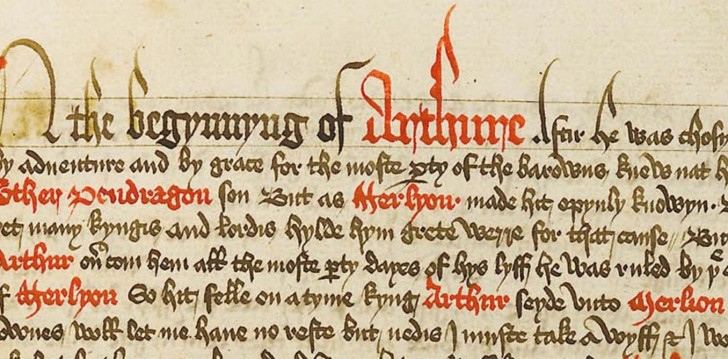 In the begynnyng of Arthure . Aftir he was chosyn
by adventure and by grace for the moste pty of the barowns knew nat h
Uther Pendragon son But as Merlyon made hit opynly knowyn .
yet many kyngis and lordis hylde hym grete werre for that cause , But
Arthur ou͛com hem all the moste pty dayes of hys lyff he was ruled by þe
of Merlyon So hit felle on a tyme kyng Arthur seyde unto Merlion
barownes woll let me have no reste but nedis I muste take a wyff & I w